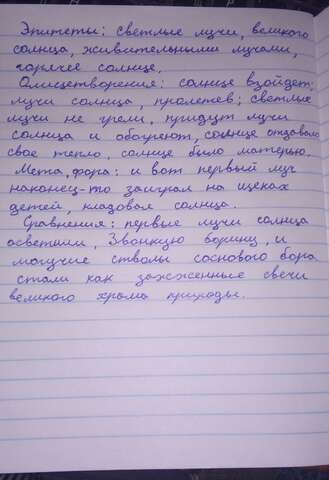 Эпитеты: светлые лучи, великого
солнца, живительными лучами,
горячее солнце.
Олицетворения: солнце взойдет;
лучи солнца, пролетев; светлые
лучи не грели, придут лучи
солнца и обогреют, солнце отдавало
свое тепло, солнце было матерью.
Метафора: и вот первый луч
наконец-то заиграл на щеках
детей, кладовая солнца.
Сравнения: первые лучи солнца
осветили, Звонкую борину, и
могучие стволы соснового бора
стали как зажженные свечи
великого храма природы.